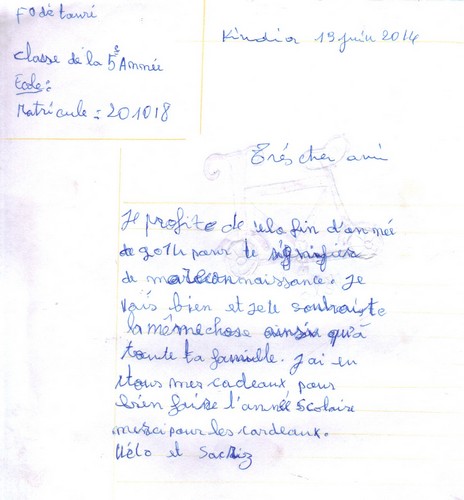 Fodé Touré
Kindia 19 juin 2014
Classe de la 5e Année
Ecole:
Matricule: 201018
Très cher ami
Je profite de la fin d'année
de 2014 pour te signifier
de ma reconnaissance. Je
vais bien et je te souhaite
la même chose ainsi qu'à
toute ta famille. J'ai eu
tous mes cadeaux pour
bien faire l'année scolaire
merci pour les cardeaux.
Vélo et Sac